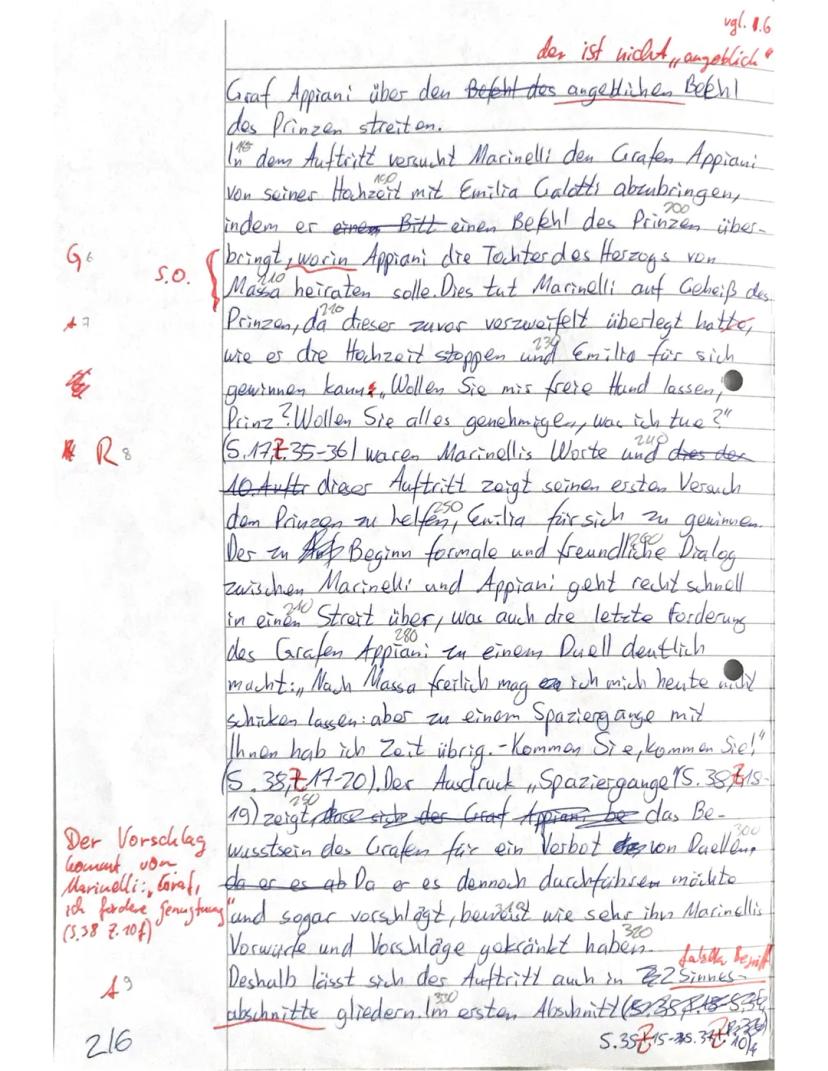 vgl. 1.6
der ist nicht „angeblich"
Graf Appiani über den Befehl des angeblichen Befehl
des Prinzen streiten.
In dem Auftritt versucht Marinelli den Grafen Appiani
von seiner Hochzeit mit Emilia Galotti abzubringen,
190
indem er einen Bitt einen Befehl des Prinzen über-
200
G 6
s.o.
bringt, worin Appiani die Tochter des Herzogs von
Massa heiraten solle. Dies tut Marinelli auf Geheiß des
210
A 7
Prinzen, da dieser zuvor verzweifelt überlegt hatte,
220
wie er die Hochzeit stoppen und Emilia für sich
230
gewinnen kann: „Wollen Sie mir freie Hand lassen,
Prinz? Wollen Sie alles genehmigen, was ich tue?"
R 8
(S. 17, Z. 35-36) waren Marinellis Worte und dies der
240
10. Auftr dieser Auftritt zeigt seinen ersten Versuch
dem Prinzen zu helfen, Emilia für sich zu gewinnen.
250
Der zu Beginn formale und freundliche Dialog
260
zwischen Marinelli und Appiani geht recht schnell
in einen Streit über, was auch die letzte Forderung
270
des Grafen Appiani zu einem Duell deutlich
280
macht: „Nach Massa freilich mag ich mich heute nicht
schicken lassen: aber zu einem Spaziergange mit
Ihnen hab ich Zeit übrig. - Kommen Sie, kommen Sie!"
(S. 38, Z 17-20). Der Ausdruck „Spaziergange" (S. 38, Z. 18-
19) zeigt, dass sich der Graf Appiani be das Be-
290
wusstsein des Grafen für ein Verbot von Duellen,
300
da er es ab Da er es dennoch durchführen möchte
und sogar vorschlägt, beweist wie sehr ihn Marinellis
310
Der Vorschlag
kommt von
Marinelli: „Graf,
ich fordere Genugtuung"
(S.38 Z.10f)
Vorwürfe und Vorschläge gekränkt haben.
320
falscher Begriff
A 9
Deshalb lässt sich der Auftritt auch in 2 Sinnes-
abschnitte gliedern. Im ersten Abschnitt
330
2/6